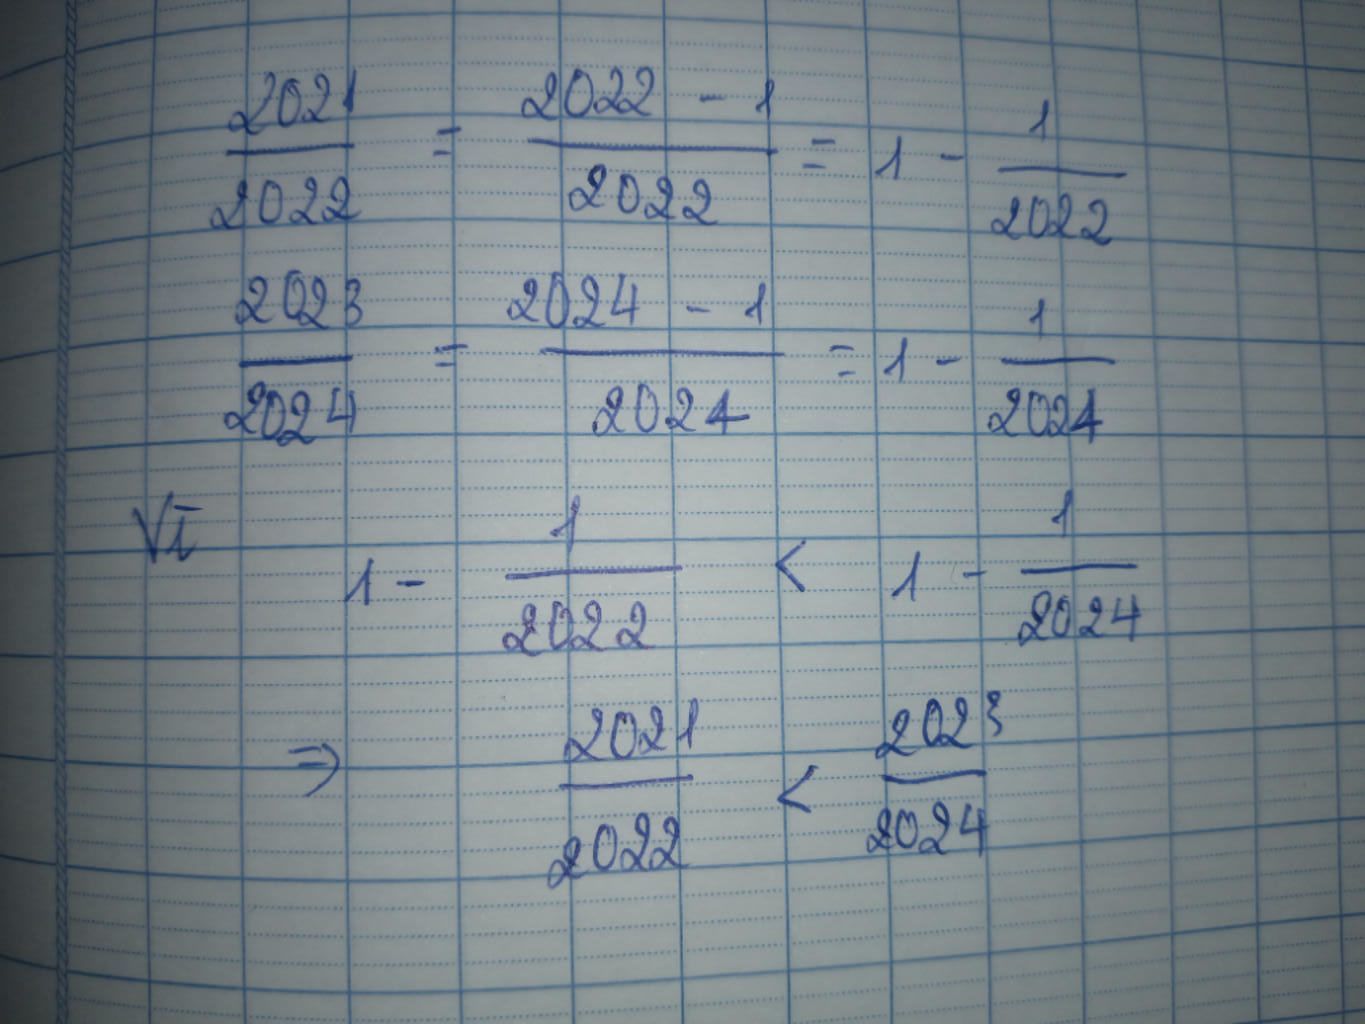 2021/2022 = (2022 - 1)/2022 = 1 - 1/2022
2023/2024 = (2024 - 1)/2024 = 1 - 1/2024
Vì 1 - 1/2022 < 1 - 1/2024
⇒ 2021/2022 < 2023/2024